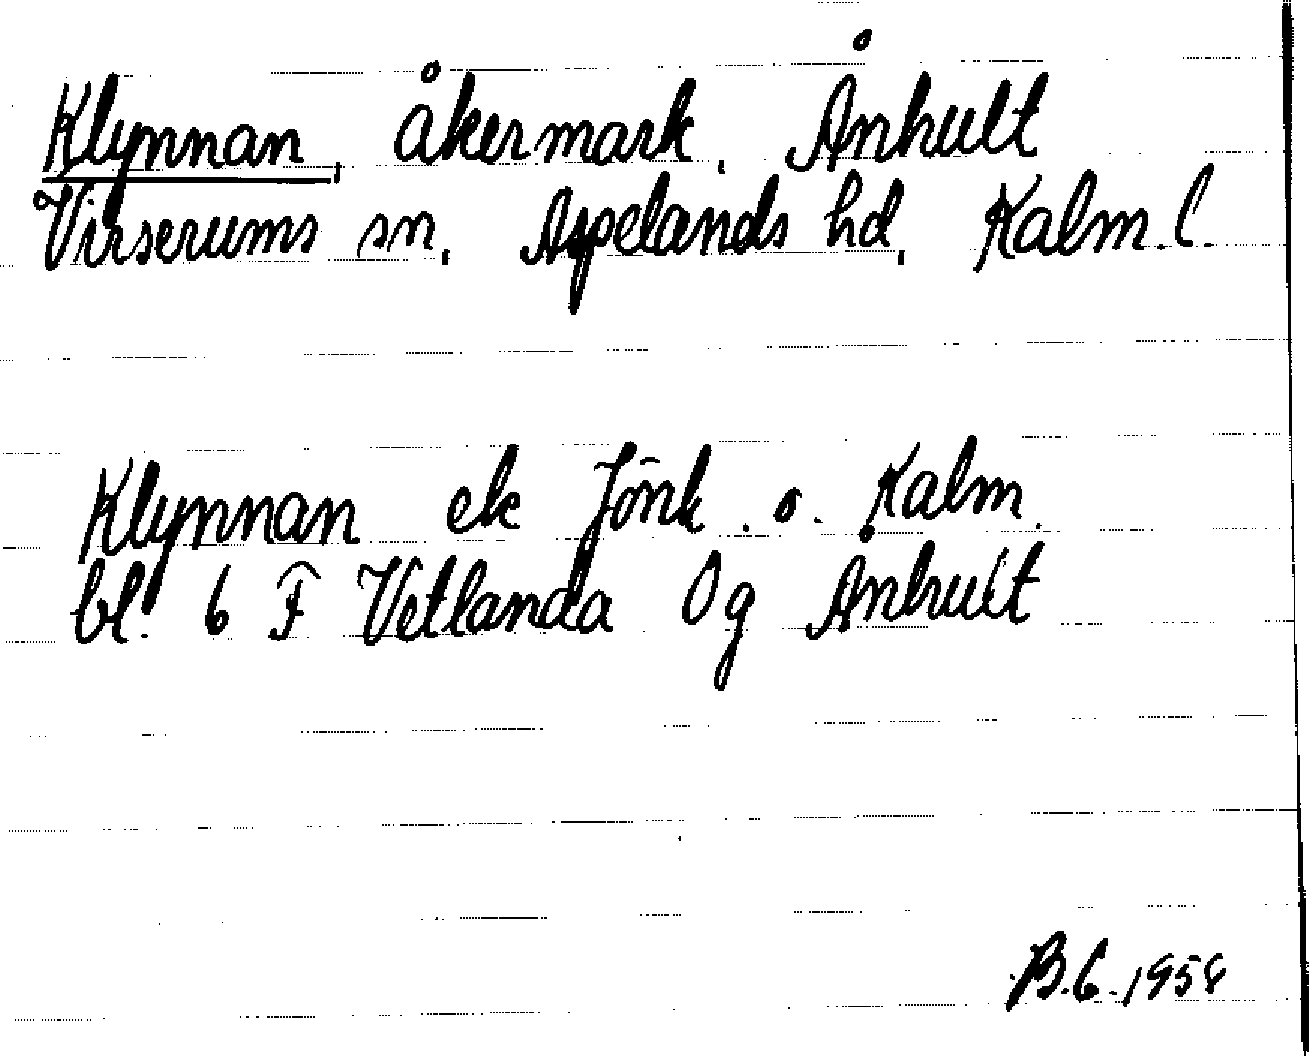 Klynnan, åkermark, Ånhult
Virserums sn, Aspelands hd, Kalm. l.
Klynnan ek Jönk. o. Kalm.
bl. 6 F Vetlanda Og Ånhult
B.G. 1958